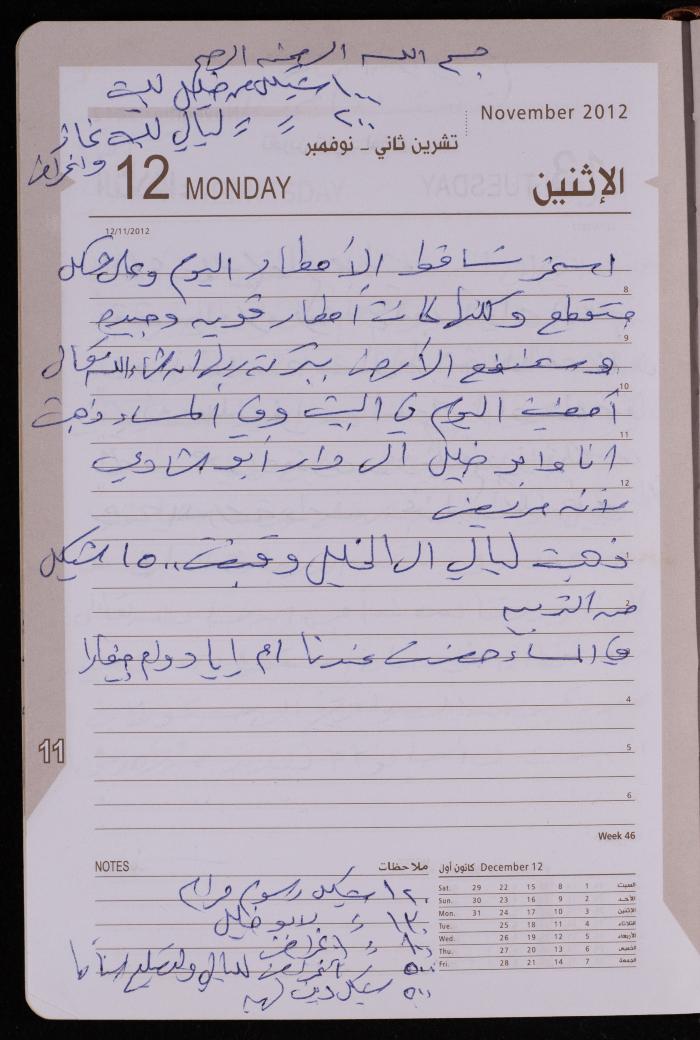 بسم الله الرحمن الرحيم
١٠٠ شيكل من خليل للبيت
٢٠٠ = = ليالي للبيت غاز
واغراض
November 2012
تشرين ثاني - نوفمبر
12 MONDAY
الإثنين
12/11/2012
استمر تساقط الأمطار اليوم وعلى شكل
8
متقطع ولكنها كانت أمطار قويه وجيده
9
وستنفع الأرض ببركة ربنا ان شاء الله تعالى
10
أمضيت اليوم في البيت وفي المساء ذهبت
11
انا وابو خليل الى دار أبو شادي
12
لأنه مريض
1
ذهبت ليالي الى الخليل وقبضت ١٥٠٠ شيكل
2
من التربيه
في المساء حضرت عندنا ام إياد وام
4
5
11
6
Week 46
NOTES ملاحظات
١٢٠ شيكل رسوم مرام
١٣٠ = لابو خليل
٨٠٠ = اغراض
٥٠٠ اغراض لليالي
٥٠٠ شيكل دين
كانون أول December 12
Sat. 29 22 15 8 1 السبت
Sun. 30 23 16 9 2 الأحد
Mon. 31 24 17 10 3 الإثنين
Tue. 25 18 11 4 الثلاثاء
Wed. 26 19 12 5 الأربعاء
Thu. 27 20 13 6 الخميس
Fri. 28 21 14 7 الجمعة